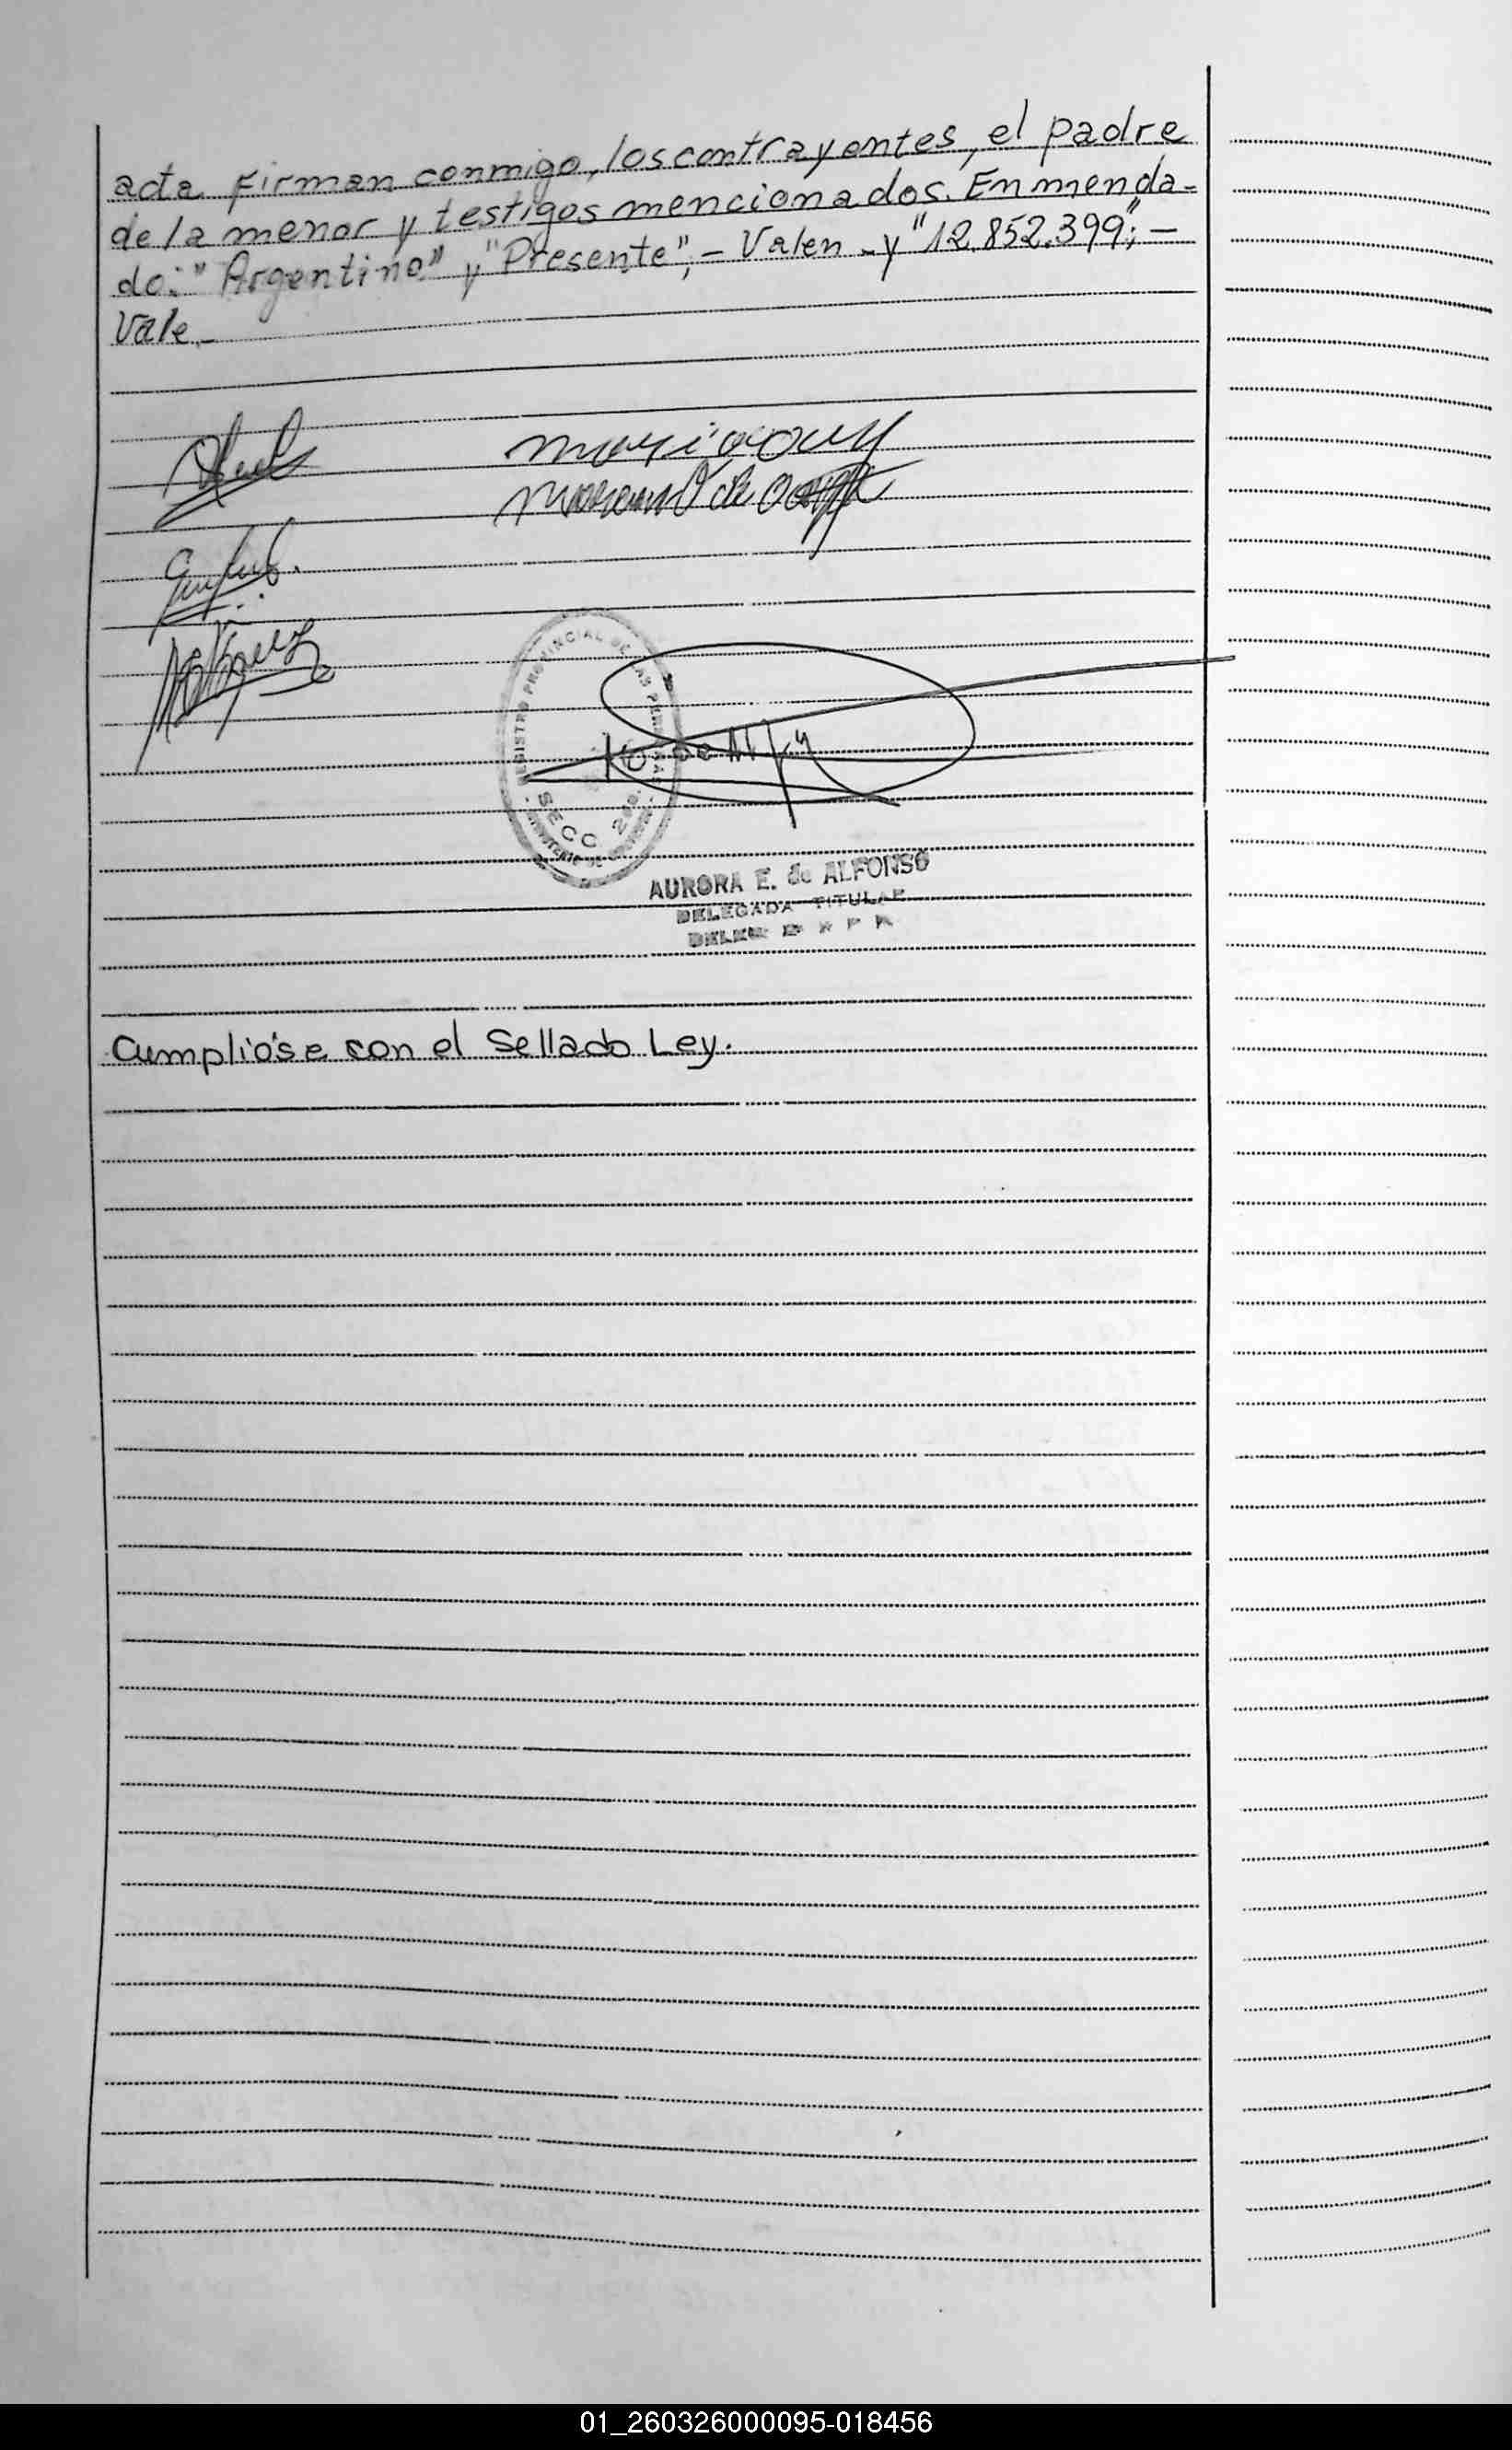 acta firman conmigo, los contrayentes, el padre
de la menor y testigos mencionados. Enmenda-
do: "Argentino" y "Presente", - Valen - y "12.852.399"; -
Vale.-
REGISTRO PROVINCIAL DE LAS PERSONAS
SECC
AURORA E. de ALFONSO
DELEGADA TITULAR
Cumplióse con el Sellado Ley.
01_260326000095-018456